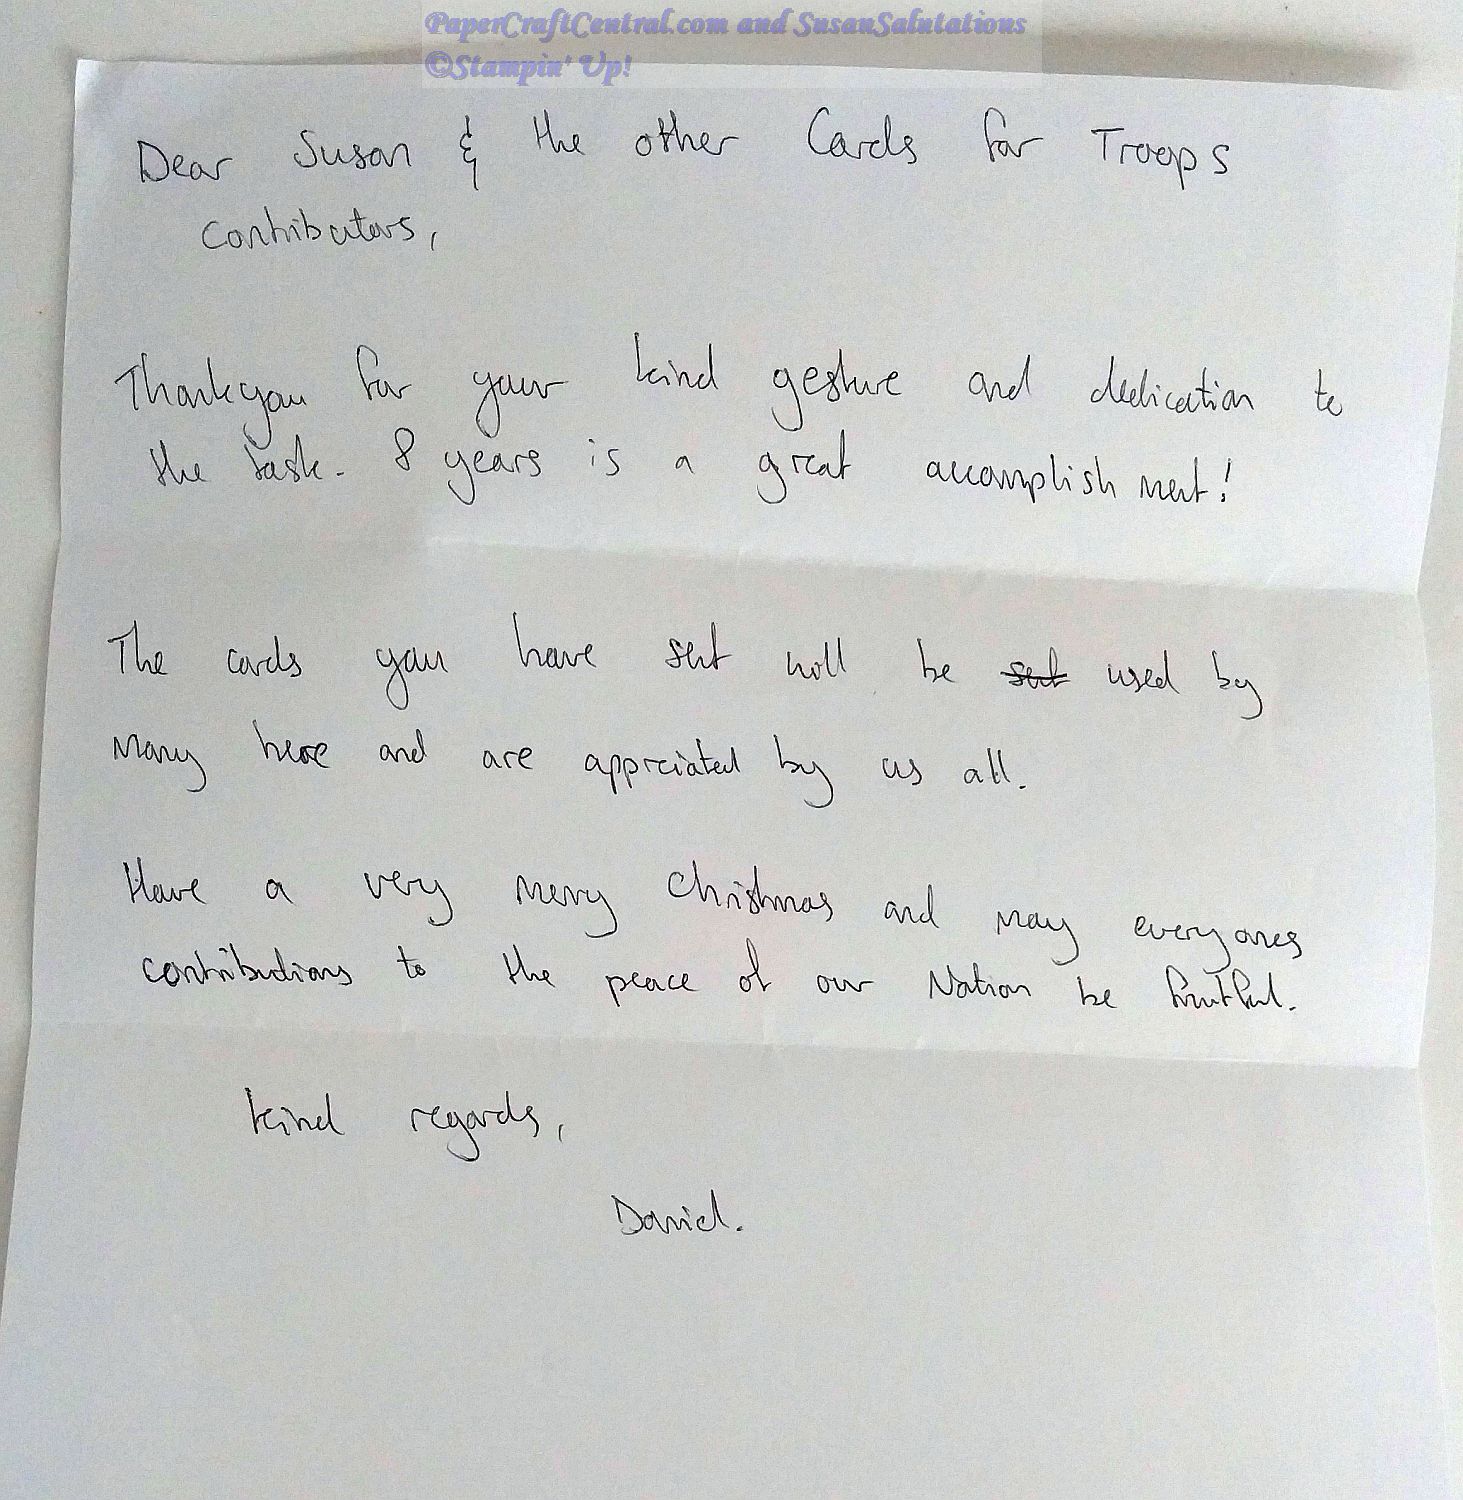 PaperCraftCentral.com and SusanSalutations
©Stampin' Up!
Dear Susan & the other Cards for Troops
contributors,
Thankyou for your kind gesture and dedication to
the task. 8 years is a great accomplishment!
The cards you have sent will be sent used by
many here and are appriciated by us all.
Have a very merry Christmas and may everyones
contributions to the peace of our Nation be fruitful.
kind regards,
Daniel.